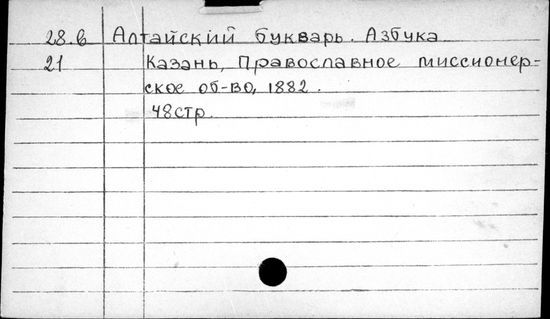 28.в Алтайский букварь. Азбука
21 Казань, Православное миссионер-
ское об-во, 1882.
48стр.